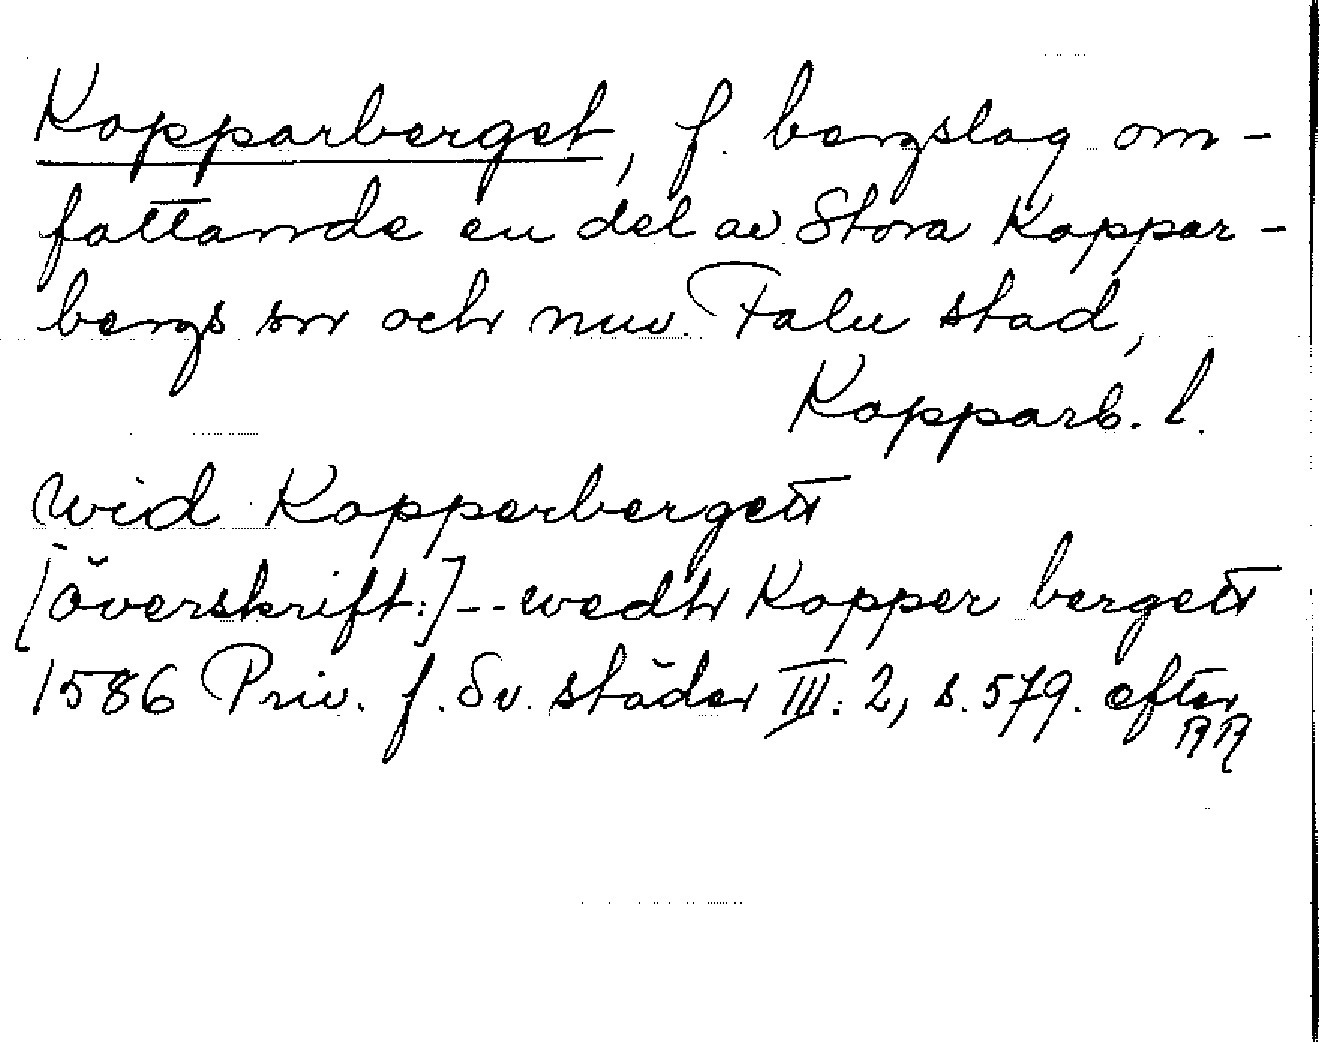 Kopparberget, f. bergslag om-
fattande en del av Stora Koppar-
bergs sn och nuv. Falu stad,
Kopparb. l.
wid Kopperbergett
[överskrift:]-- wedh Kopper bergett
1586 Priv. f. Sv. städer III: 2, s. 579. efter
RR